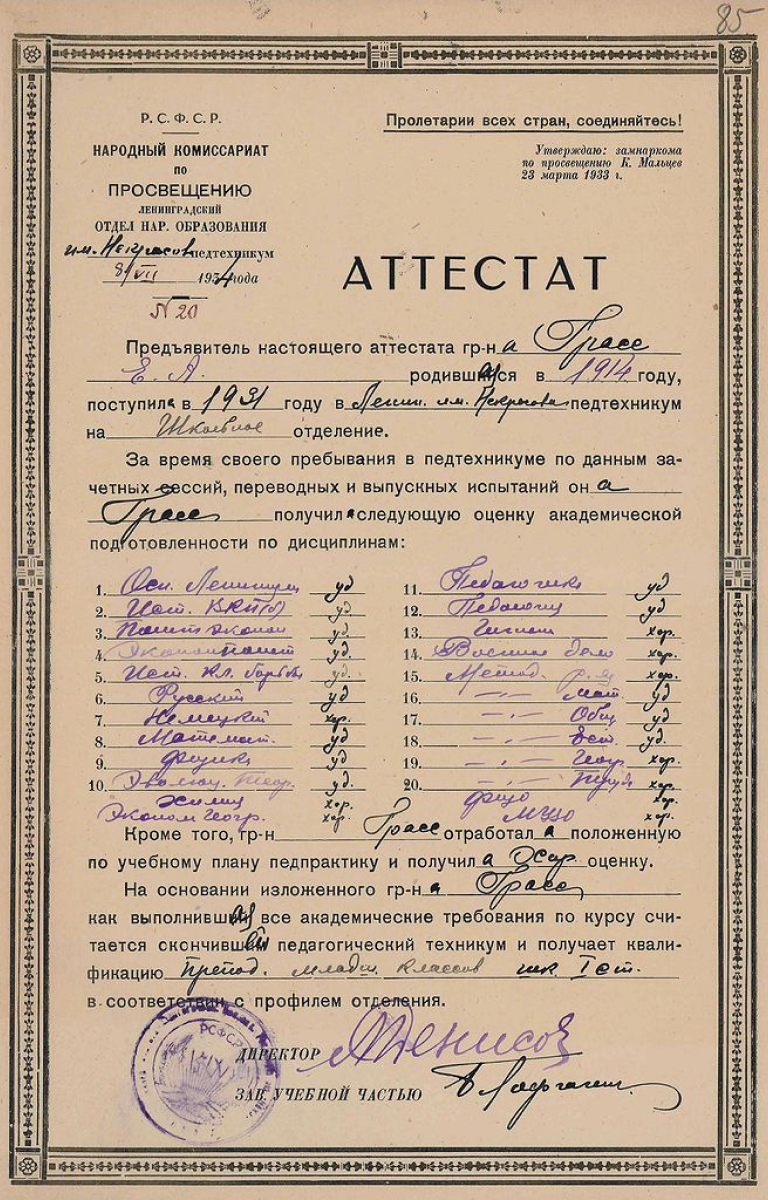 85
Р. С. Ф. С. Р.
Пролетарии всех стран, соединяйтесь!
НАРОДНЫЙ КОМИССАРИАТ
ПО
ПРОСВЕЩЕНИЮ
ЛЕНИНГРАДСКИЙ
ОТДЕЛ НАР. ОБРАЗОВАНИЯ
им. Некрасов педтехникум
8/VII 1934 года
N 20
Утверждаю: замнаркома
по просвещению К. Мальцев
23 марта 1933 г.
АТТЕСТАТ
Предъявитель настоящего аттестата гр-на Грасс
Е. А. родившаяся в 1914 году,
поступила в 1931 году в Ленин. им. Некрасова педтехникум
на Школьное отделение.
За время своего пребывания в педтехникуме по данным за-
четных сессий, переводных и выпускных испытаний она
Грасс получила следующую оценку академической
подготовленности по дисциплинам:
1. Осн. Ленинизм уд
2. Ист. ВКП(б) уд
3. Полит эконом уд.
4. Экономполит уд.
5. Ист. Кл. борьбы уд.
6. Русский уд
7. Немецкий хор.
8. Математ. уд
9. Физика уд
10. Эволюц. Теор. уд.
Химия хор.
Эконом геогр. хор.
11. Педагогика уд
12. Педология уд
13. Гигиена хор.
14. Военное дело хор.
15. Метод. р. яз хор.
16. —„— Мат. уд
17. —„— Общ уд
18. —„— Ест. уд.
19. —„— Геогр. хор.
20. —„— Труда хор.
физо хор.
МУЗО хор.
Кроме того, гр-н Грасс отработала положенную
по учебному плану педпрактику и получила Хор. оценку.
На основании изложенного гр-на Грасс
как выполнившая все академические требования по курсу счи-
тается окончившей педагогический техникум и получает квали-
фикацию препод. младш. классов шк. I ст.
в соответствии с профилем отделения.
РСФСР
ДИРЕКТОР Денисов
ЗАВ. УЧЕБНОЙ ЧАСТЬЮ